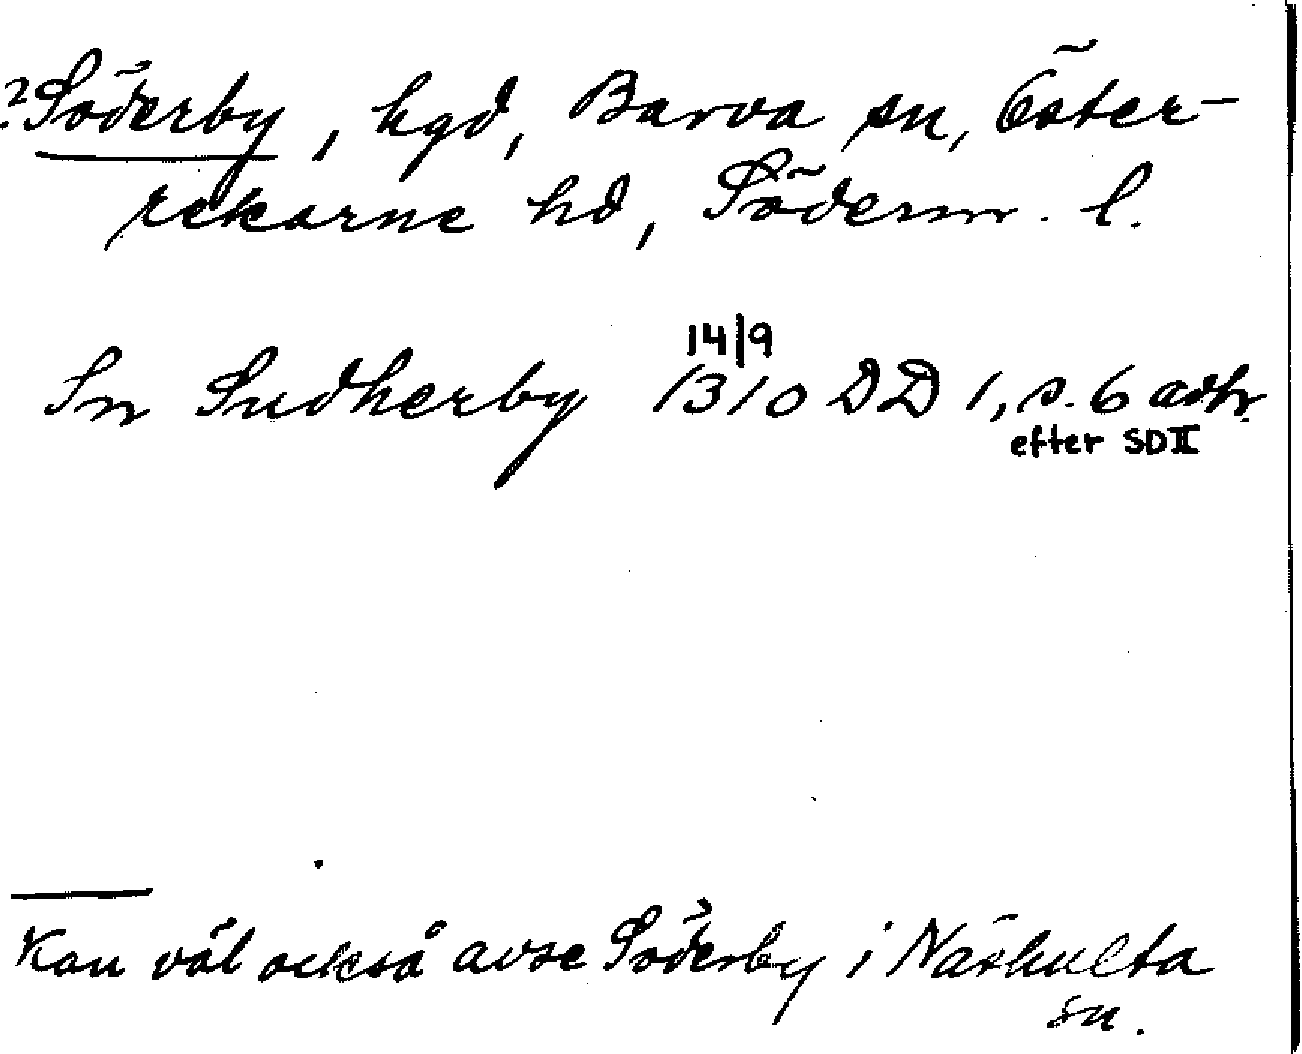 ? Söderby, hgd, Barva sn, Öster-
rekarne hd, Söderm. l.
14/9
In Sudherby 1310 DD 1, s. 6 avskr.
efter SD II
Kan väl också avse Söderby i Näshulta
sn.